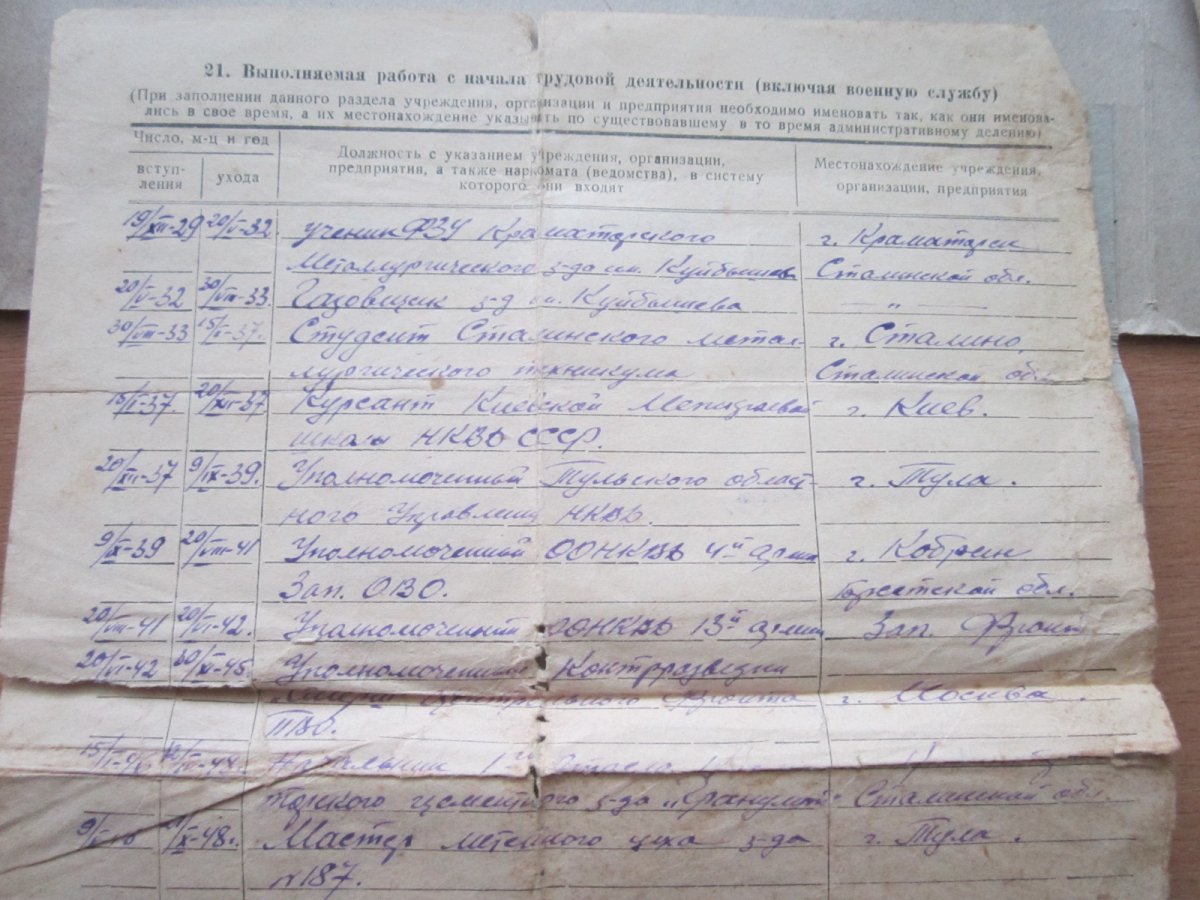 21. Выполняемая работа с начала трудовой деятельности (включая военную службу)
(При заполнении данного раздела учреждения, организации и предприятия необходимо именовать так, как они именова-
лись в свое время, а их местонахождение указывать по существовавшему в то время административному делению)
Число, м-ц и год
вступ-
ления
ухода
Должность с указанием учреждения, организации,
предприятия, а также наркомата (ведомства), в систему
которого они входят
Местонахождение учреждения,
организации, предприятия
19/XII-29 20/V-32. ученик ФЗУ Краматорского г. Краматорск
Металлургического з-да им. Куйбышева Сталинской обл.
20/V-32 30/VIII-33. Газовщик з-д им. Куйбышева — " —
30/VIII-33 15/V-37. Студент Сталинского метал- г. Сталино,
лургического техникума Сталинской обл.
15/V-37. 20/XII-37 Курсант Киевской Межкраевой г. Киев.
школы НКВД СССР.
20/XII-37 9/IX-39. Уполномоченный Тульского област- г. Тула.
ного Управления НКВД.
9/IX-39 20/VIII-41 Уполномоченный ООНКВД 4й армии г. Кобрин
Зап. ОВО. Брестской обл.
20/VIII-41 20/VI-42. Уполномоченный ООНКВД 13й армии Зап. Фронт
20/VI-42 30/XI-45. Уполномоченный Контрразведки
Центрального Фронта г. Москва.
ПВО.
Начальник 1го
цементного з-да Сталинской обл.
-48г. Мастер цеха з-да г. Тула.
№187.